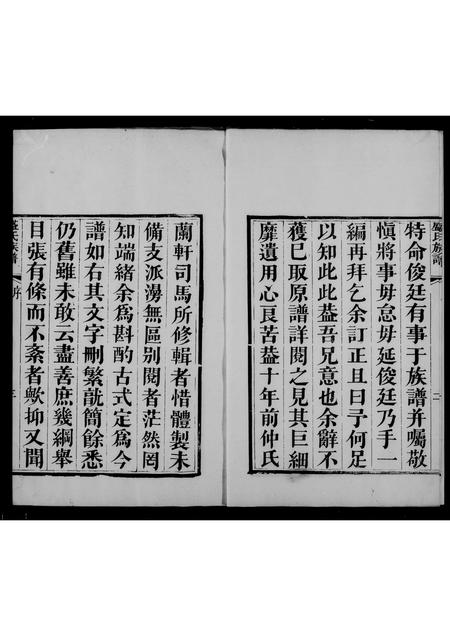 特命俊廷有事于族譜并囑敬
愼將事毋怠毋延俊廷乃手一
編再拜乞余訂正且曰予何足
以知此此葢吾兄意也余辭不
獲巳取原譜詳閱之見其巨細
靡遺用心良苦葢十年前仲氏
二
蘭軒司馬所修輯者惜體製未
備支派淆無區别閱者茫然罔
知端緒余爲斟酌古式定爲今
譜如右其文字刪繁就簡餘悉
仍舊雖未敢云盡善庶幾綱舉
目張有條而不紊者歟抑又聞
氏族譜
序